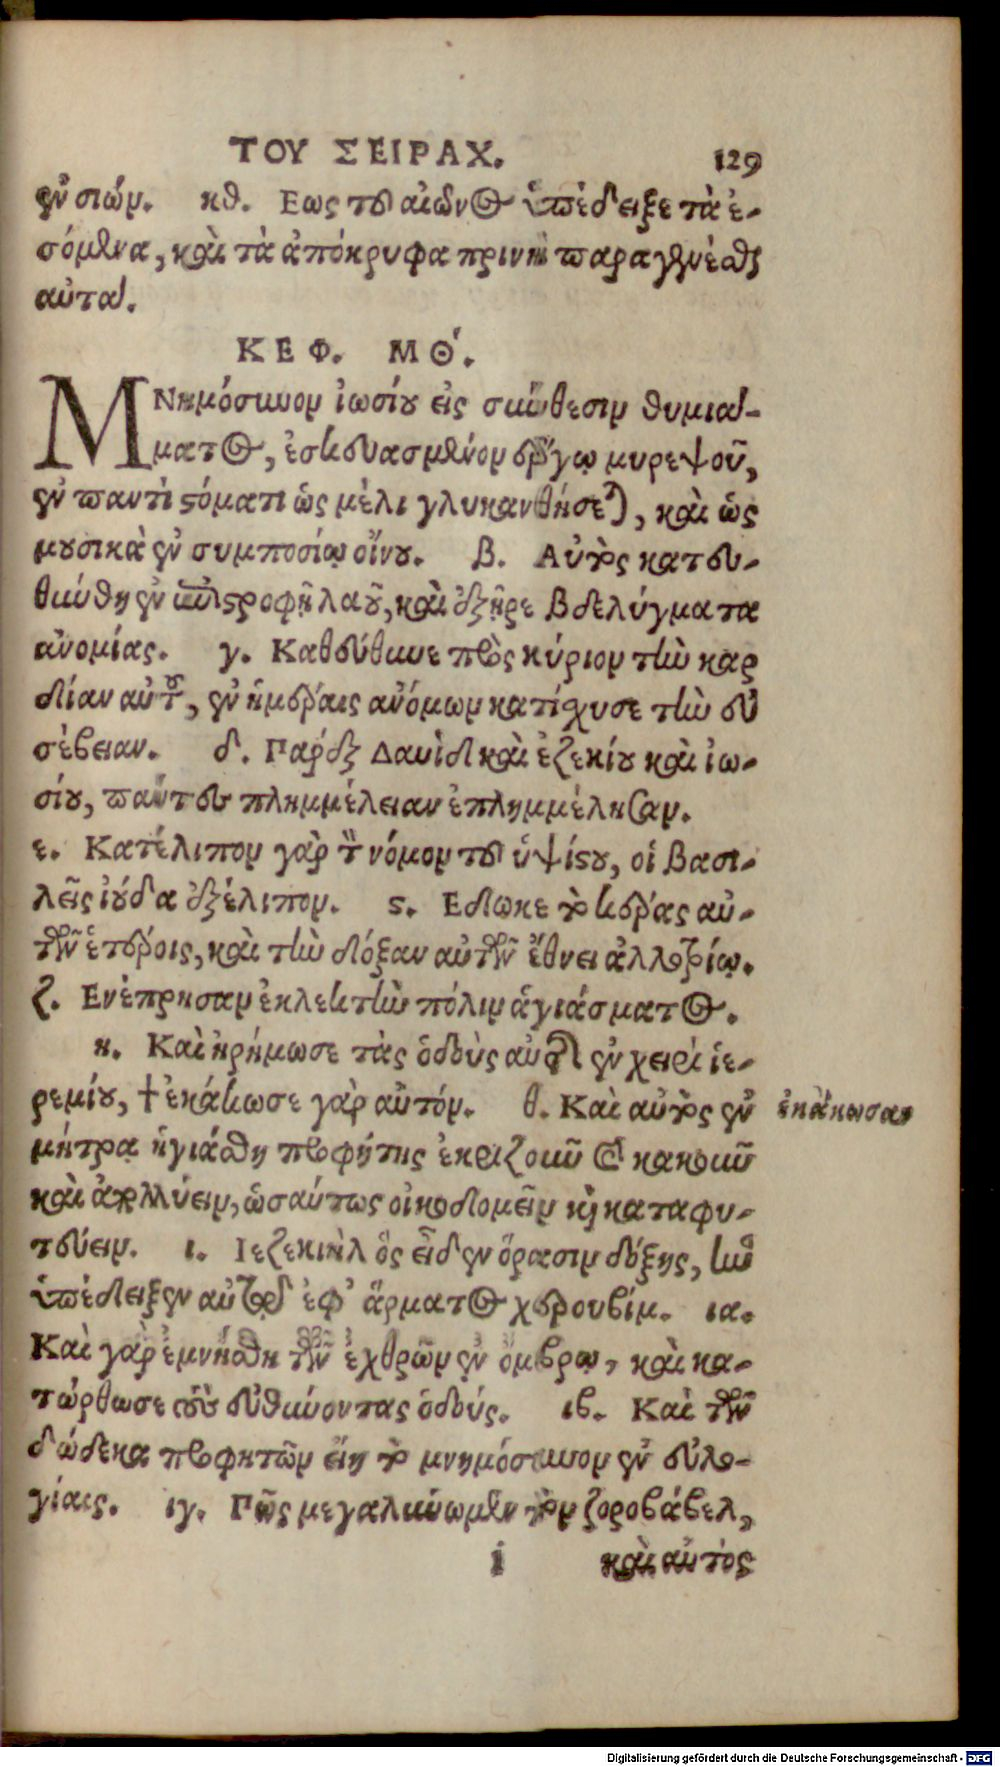 ΤΟΥ ΣΕΙΡΑΧ. 129
ἐν σιών. κθ. Εως τοῦ αἰῶνος ὑπέδειξε τὰ ἐ-
σόμενα, καὶ τὰ ἀπόκρυφα πρινὴ παραγενέσθαι
αὐτά.
ΚΕΦ. ΜΘ΄.
ΜΝημόσυνον ἰωσίου εἰς σύνθεσιν θυμιά-
ματος, ἐσκευασμένον ἔργῳ μυρεψοῦ,
ἐν παντὶ στόματι ὡς μέλι γλυκανθήσεται, καὶ ὡς
μουσικὰ ἐν συμποσίῳ οἴνου. β. Αὐτὸς κατευ-
θύνθη ἐν ἐπιστροφῇ λαοῦ, καὶ ἐξῆρε βδελύγματα
ἀνομίας. γ. Κατεύθυνε πρὸς κύριον τὴν καρ
δίαν αὐτοῦ, ἐν ἡμέραις ἀνόμων κατίχυσε τὴν εὐ
σέβειαν. δ. Πάρεξ Δαυὶδ καὶ ἐζεκίου καὶ ἰω-
σίου, πάντες πλημμέλειαν ἐπλημμέλησαν.
ε. Κατέλιπον γὰρ τὸν νόμον τοῦ ὑψίστου, οἱ βασι-
λεῖς ἰούδα ἐξέλιπον. ϛ. Εδωκε τὸ κέρας αὐ-
τῶν ἑτέροις, καὶ τὴν δόξαν αὐτῶν ἔθνει ἀλλοτρίῳ.
ζ. Ενέπρησαν ἐκλεκτὴν πόλιν ἁγιάσματος.
η. Καὶ ἠρήμωσε τὰς ὁδοὺς αὐτῆς ἐν χειρὶ ἱε-
ρεμίου, † ἐκάκωσε γὰρ αὐτόν. θ. Καὶ αὐτὸς ἐν
ἐκάκωσαν
μήτρᾳ ἡγιάσθη προφήτης ἐκριζοῦν καὶ κακοῦν
καὶ ἀπολλύειν, ὡσαύτως οἰκοδομεῖν καὶ καταφυ-
τεύειν. ι. Ιεζεκιὴλ ὃς εἶδεν ὅρασιν δόξης, ἣν
ὑπέδειξεν αὐτῷ ἐφ᾽ ἅρματος χερουβίμ. ια.
Καὶ γὰρ ἐμνήσθη τῶν ἐχθρῶν ἐν ὄμβρῳ, καὶ κα-
τώρθωσε τοὺς εὐθύνοντας ὁδούς. ιβ. Καὶ τῶν
δώδεκα προφητῶν εἴη τὸ μνημόσυνον ἐν εὐλο-
γίαις. ιγ. Πῶς μεγαλύνωμεν τὸν ζοροβάβελ,
i καὶ αὐτὸς
Digitalisierung gefördert durch die Deutsche Forschungsgemeinschaft - DFG